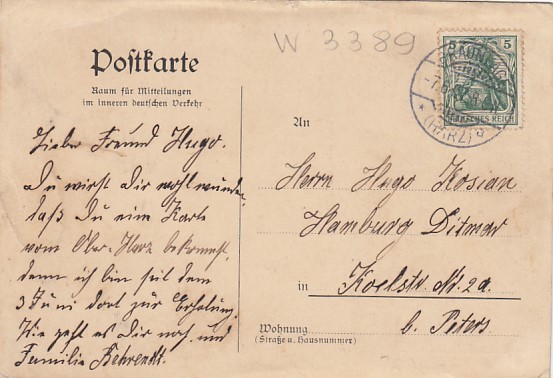 W 3389
Postkarte
Raum für Mitteilungen
im inneren deutschen Verkehr
Lieber Freund Hugo.
Du wirst Dir wohl wunder
daß Du eine Karte
vom Ober-Harz bekommst,
denn ich bin seit dem
3 Juni dort zur Erholung.
Wie geht es Dir noch und
Familie Behrendt.
5
DEUTSCHES REICH
(HARZ)
An
Herrn Hugo Kosian
Hamburg Ditmar
in Koelstr. N. 2a.
Wohnung
(Straße u. Hausnummer)
b. Peters